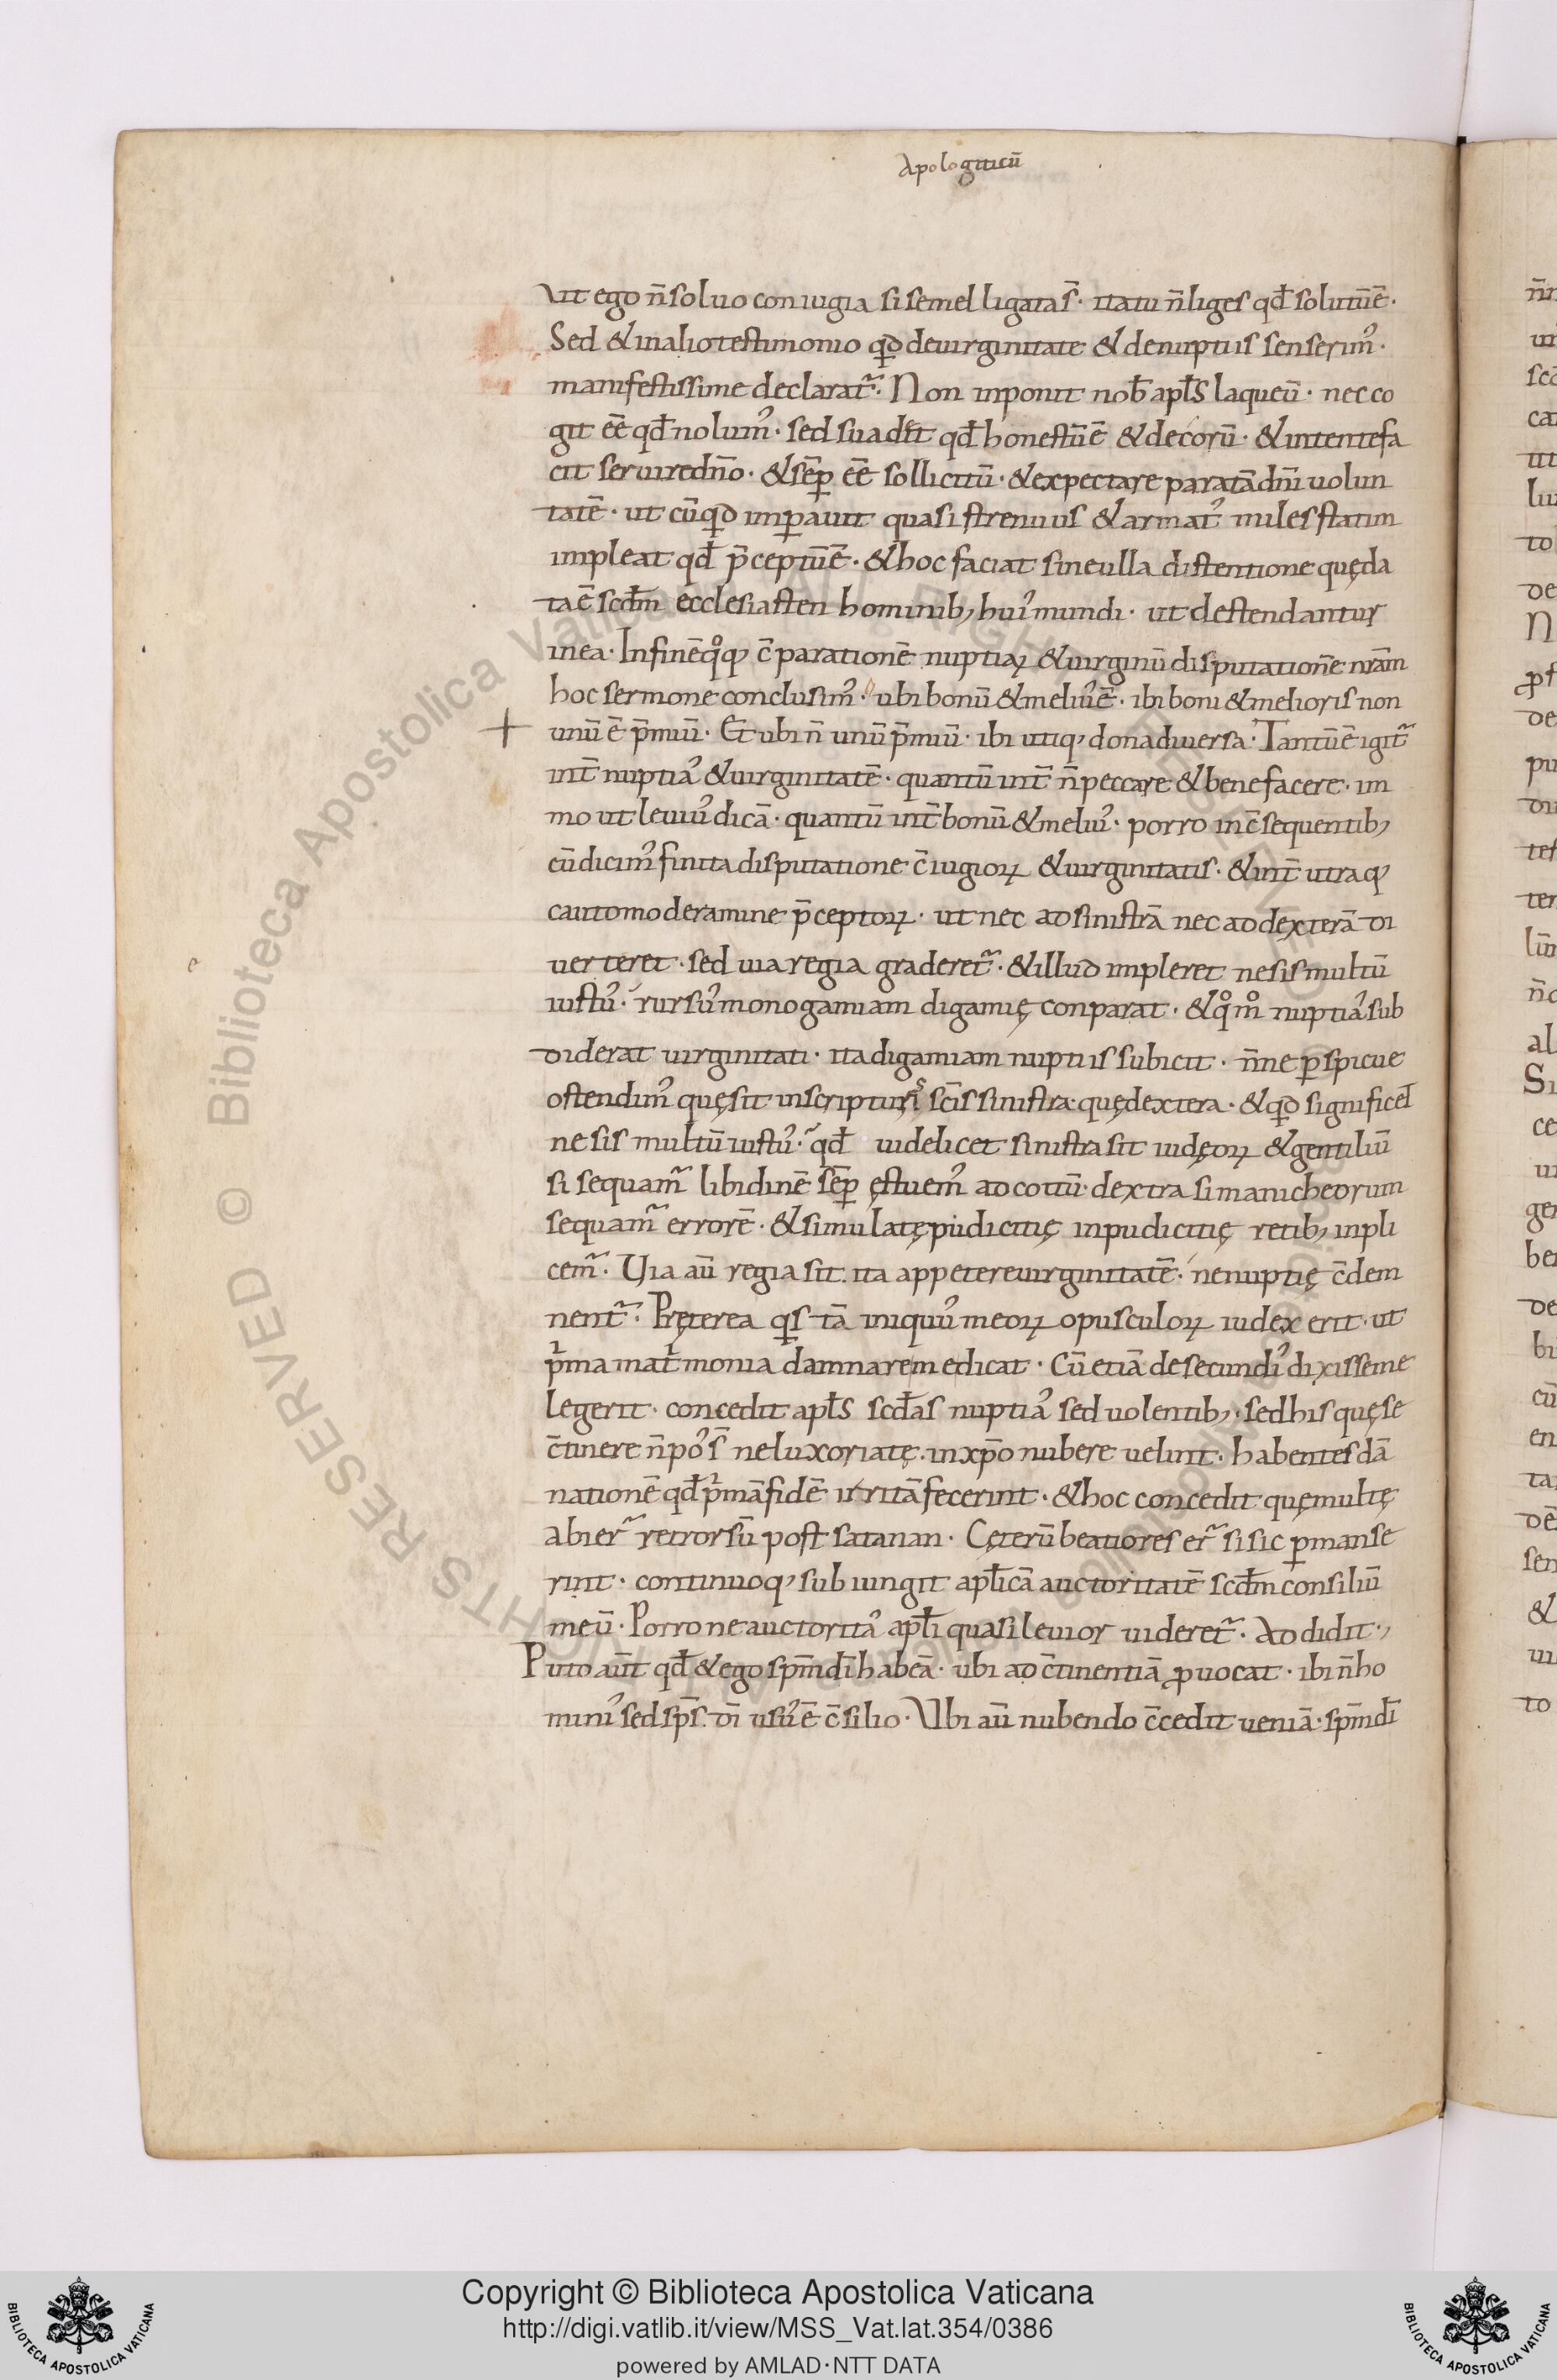 Apologiticū
Ut ego n̄ soluo coniugia si semel ligata s̄· ita tu n̄ liges qđ solutū ē·
Sed & in alio testimonio qͥd de uirginitate & de nuptiis senserimꝰ·
manifestissime declarat᷑· Non inponit nob̄ apłs laqueū· nec co
git ēē qđ nolumꝰ· sed suadet qđ honestū ē & decorū· & intente fa
cit seruire dn̄o· & sēp ēē sollicitū· & expectare paratā dn̄i uolun
tatē· ut cū qͥd impauit quasi strenuus & armatꝰ miles statim
impleat qđ p̄ceptū ē· & hoc faciat sine ulla distentione quę da
ta ē scđm ecclesiasten hominib; huiꝰ mundi· ut destendantur
in ea· In fine qͦq; c̄parationē nuptiaꝝ & uirginū disputationē nr̄am
hoc sermone conclusimꝰ· ubi bonū & meliꝰ ē· ibi boni & melioris non
unū ē p̄miū· Et ubi n̄ unū p̄miū· ibi utiq; dona diuersa· Tantū ē igit᷑
int̄ nuptiaꝰ & uirginitatē· quantū int̄ n̄ peccare & bene facere· im
mo ut leuiuꝰ dicā· quantū int̄ bonū & meliuꝰ· porro in c̄sequentib;
cū dicimꝰ finita disputatione c̄iugioꝝ & uirginitatis· & int̄ utraq;
cauto moderamine p̄ceptoꝝ· ut nec ad sinistrā nec ad dexterā di
uerteret· sed uia regia graderet᷑· & illud impleret ne sis multū
iustuꝰ· rursuꝰ monogamiam digamię conparat· & qͦmͦ nuptiaꝰ sub
diderat uirginitati· ita digamiam nuptiis subicit· n̄ne pspicue
ostendimꝰ quę sit in scripturis sc̄is sinistra quę dextera· & qͥd significet
ne sis multū iustuꝰ· qđ uidelicet sinistra sit iudęoꝝ & gentiliū
si sequam᷑ libidinē sēp ęstuemꝰ ad coitū· dextra si manicheorum
sequam᷑ errorē· & simulatę pudicitię inpudicitię retib; inpli
cem᷑· Uia aū regia sit· ita appetere uirginitatē· ne nuptię c̄dem
nent᷑· Pręterea qͥs tā iniquuꝰ meoꝝ opusculoꝝ iudex erit· ut
pͥma matͥmonia damnare me dicat· Cū etiā de secundiꝰ dixisse me
legerit· concedit apłs scđas nuptiaꝰ sed uolentib;· sed his quę se
c̄tinere n̄ poꝰs̄ ne luxoriatę· in xp̄o nubere uelint· habentes dā
nationē qđ pͥmā fidē irritā fecerint· & hoc concedit quę multę
abier᷑ retrorsū post satanan· Cęterū beatiores er᷑ si sic pmanse
rint· continuoq; subiungit apłicā auctoritatē scđm consiliū
meū· Porro ne auctoritaꝰ apłi quasi leuior uideret᷑· Addidit·,
Puto aūt qđ & ego sp̄m dī habeā· ubi ad c̄tinentiā ꝓuocat· ibi n̄ ho
miniꝰ sed sp̄s dī usuꝰ ē c̄silio· Ubi aū nubendo c̄cedit ueniā· sp̄m dī
Copyright © Biblioteca Apostolica Vaticana
http://digi.vatlib.it/view/MSS_Vat.lat.354/0386
powered by AMLAD·NTT DATA